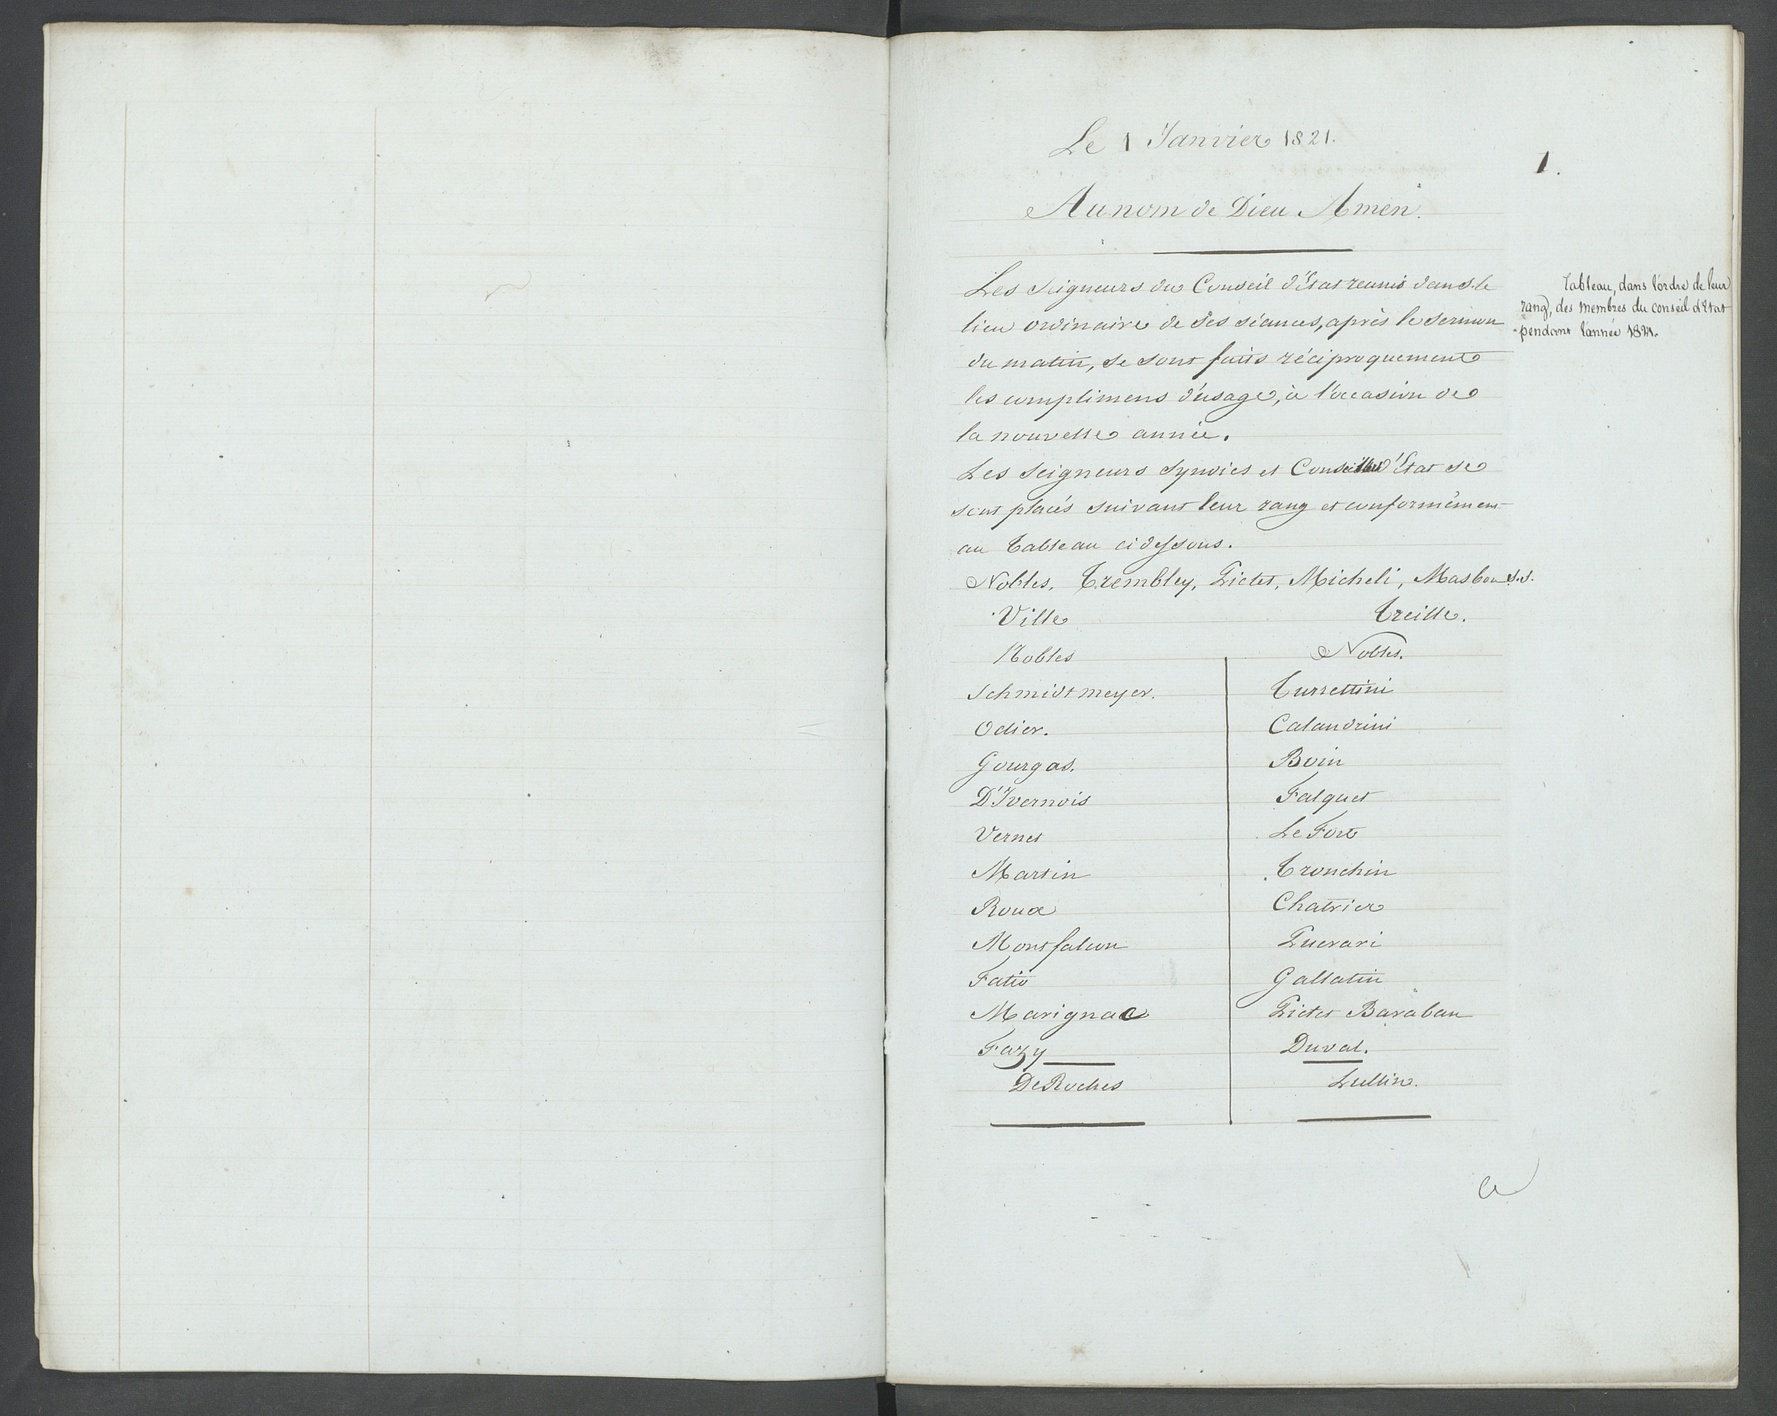 Le 1 Janvier 1821.
1.
Au nom de Dieu Amen.
Tableau, dans l'ordre de leur
rang, des membres du conseil d'Etat
pendant l'année 1821.
Les Seigneurs du Conseil d'Etat reunis dans le
lieu ordinaire de ses séances, après le sermon
du matin, se sont faits réciproquement
les complimens d'usage, à l'occasion de
la nouvelle année.
Les Seigneurs Syndics et Conseillers d'Etat se
sont placés suivant leur rang et conformément
au Tableau cidessous.
Nobles, Trembley, Pictet, Micheli, Masbou S.S.
Ville Treille.
Nobles Nobles.
Schmidtmeyer. Turrettini
Odier. Calandrini
Gourgas. Boin
D'Ivernois Falquet
Vernet Le Fort
Martin Tronchin
Roux Chatrier
Montfalcon Puerari
Fatio Gallatin
Marignac Pictet Baraban
Fazy Duval.
DeRoches Lullin.